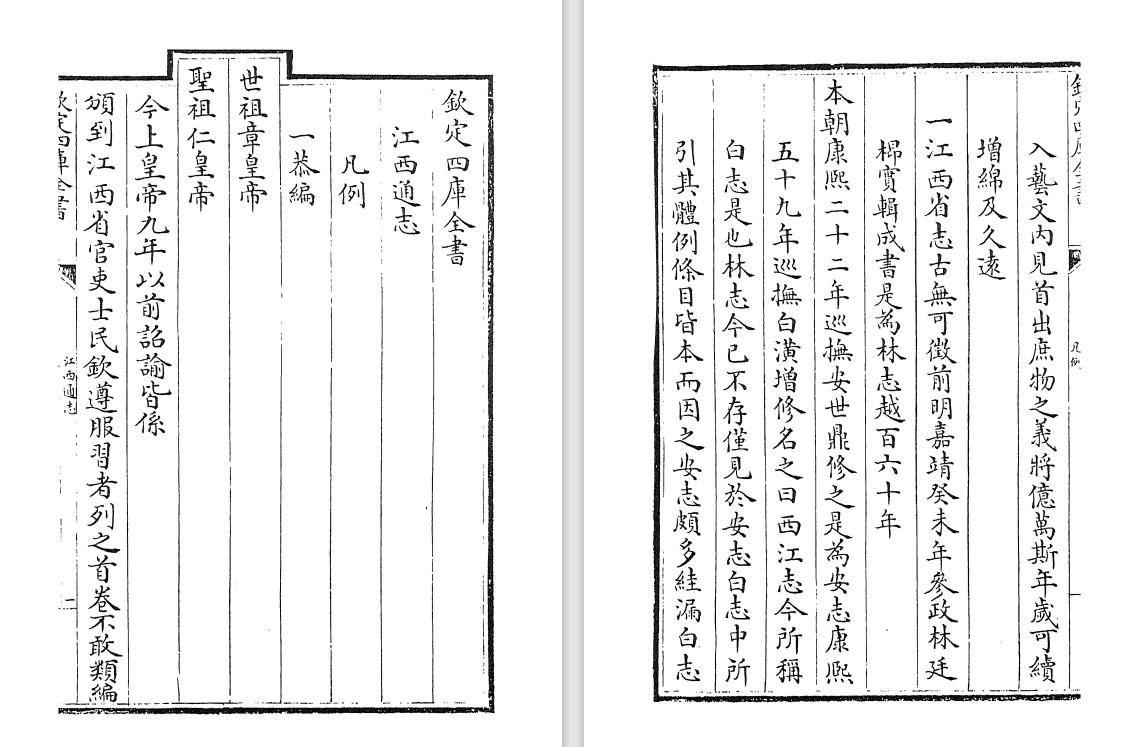 欽定四庫全書
江西通志
凡例
一恭編
世祖章皇帝
聖祖仁皇帝
今上皇帝九年以前詔諭皆係
頒到江西省官吏士民欽遵服習者列之首卷不敢類編
欽定四庫全書
江西通志
凡例
入藝文內見首出庶物之義將億萬斯年歲可續
增綿及久遠
一江西省志古無可徵前明嘉靖癸未年參政林廷
棉實輯成書是為林志越百六十年
本朝康熙二十二年巡撫安世鼎修之是為安志康熙
五十九年巡撫白潢增修名之曰西江志今所稱
白志是也林志今已不存僅見於安志白志中所
引其體例條目皆本而因之安志頗多絓漏白志